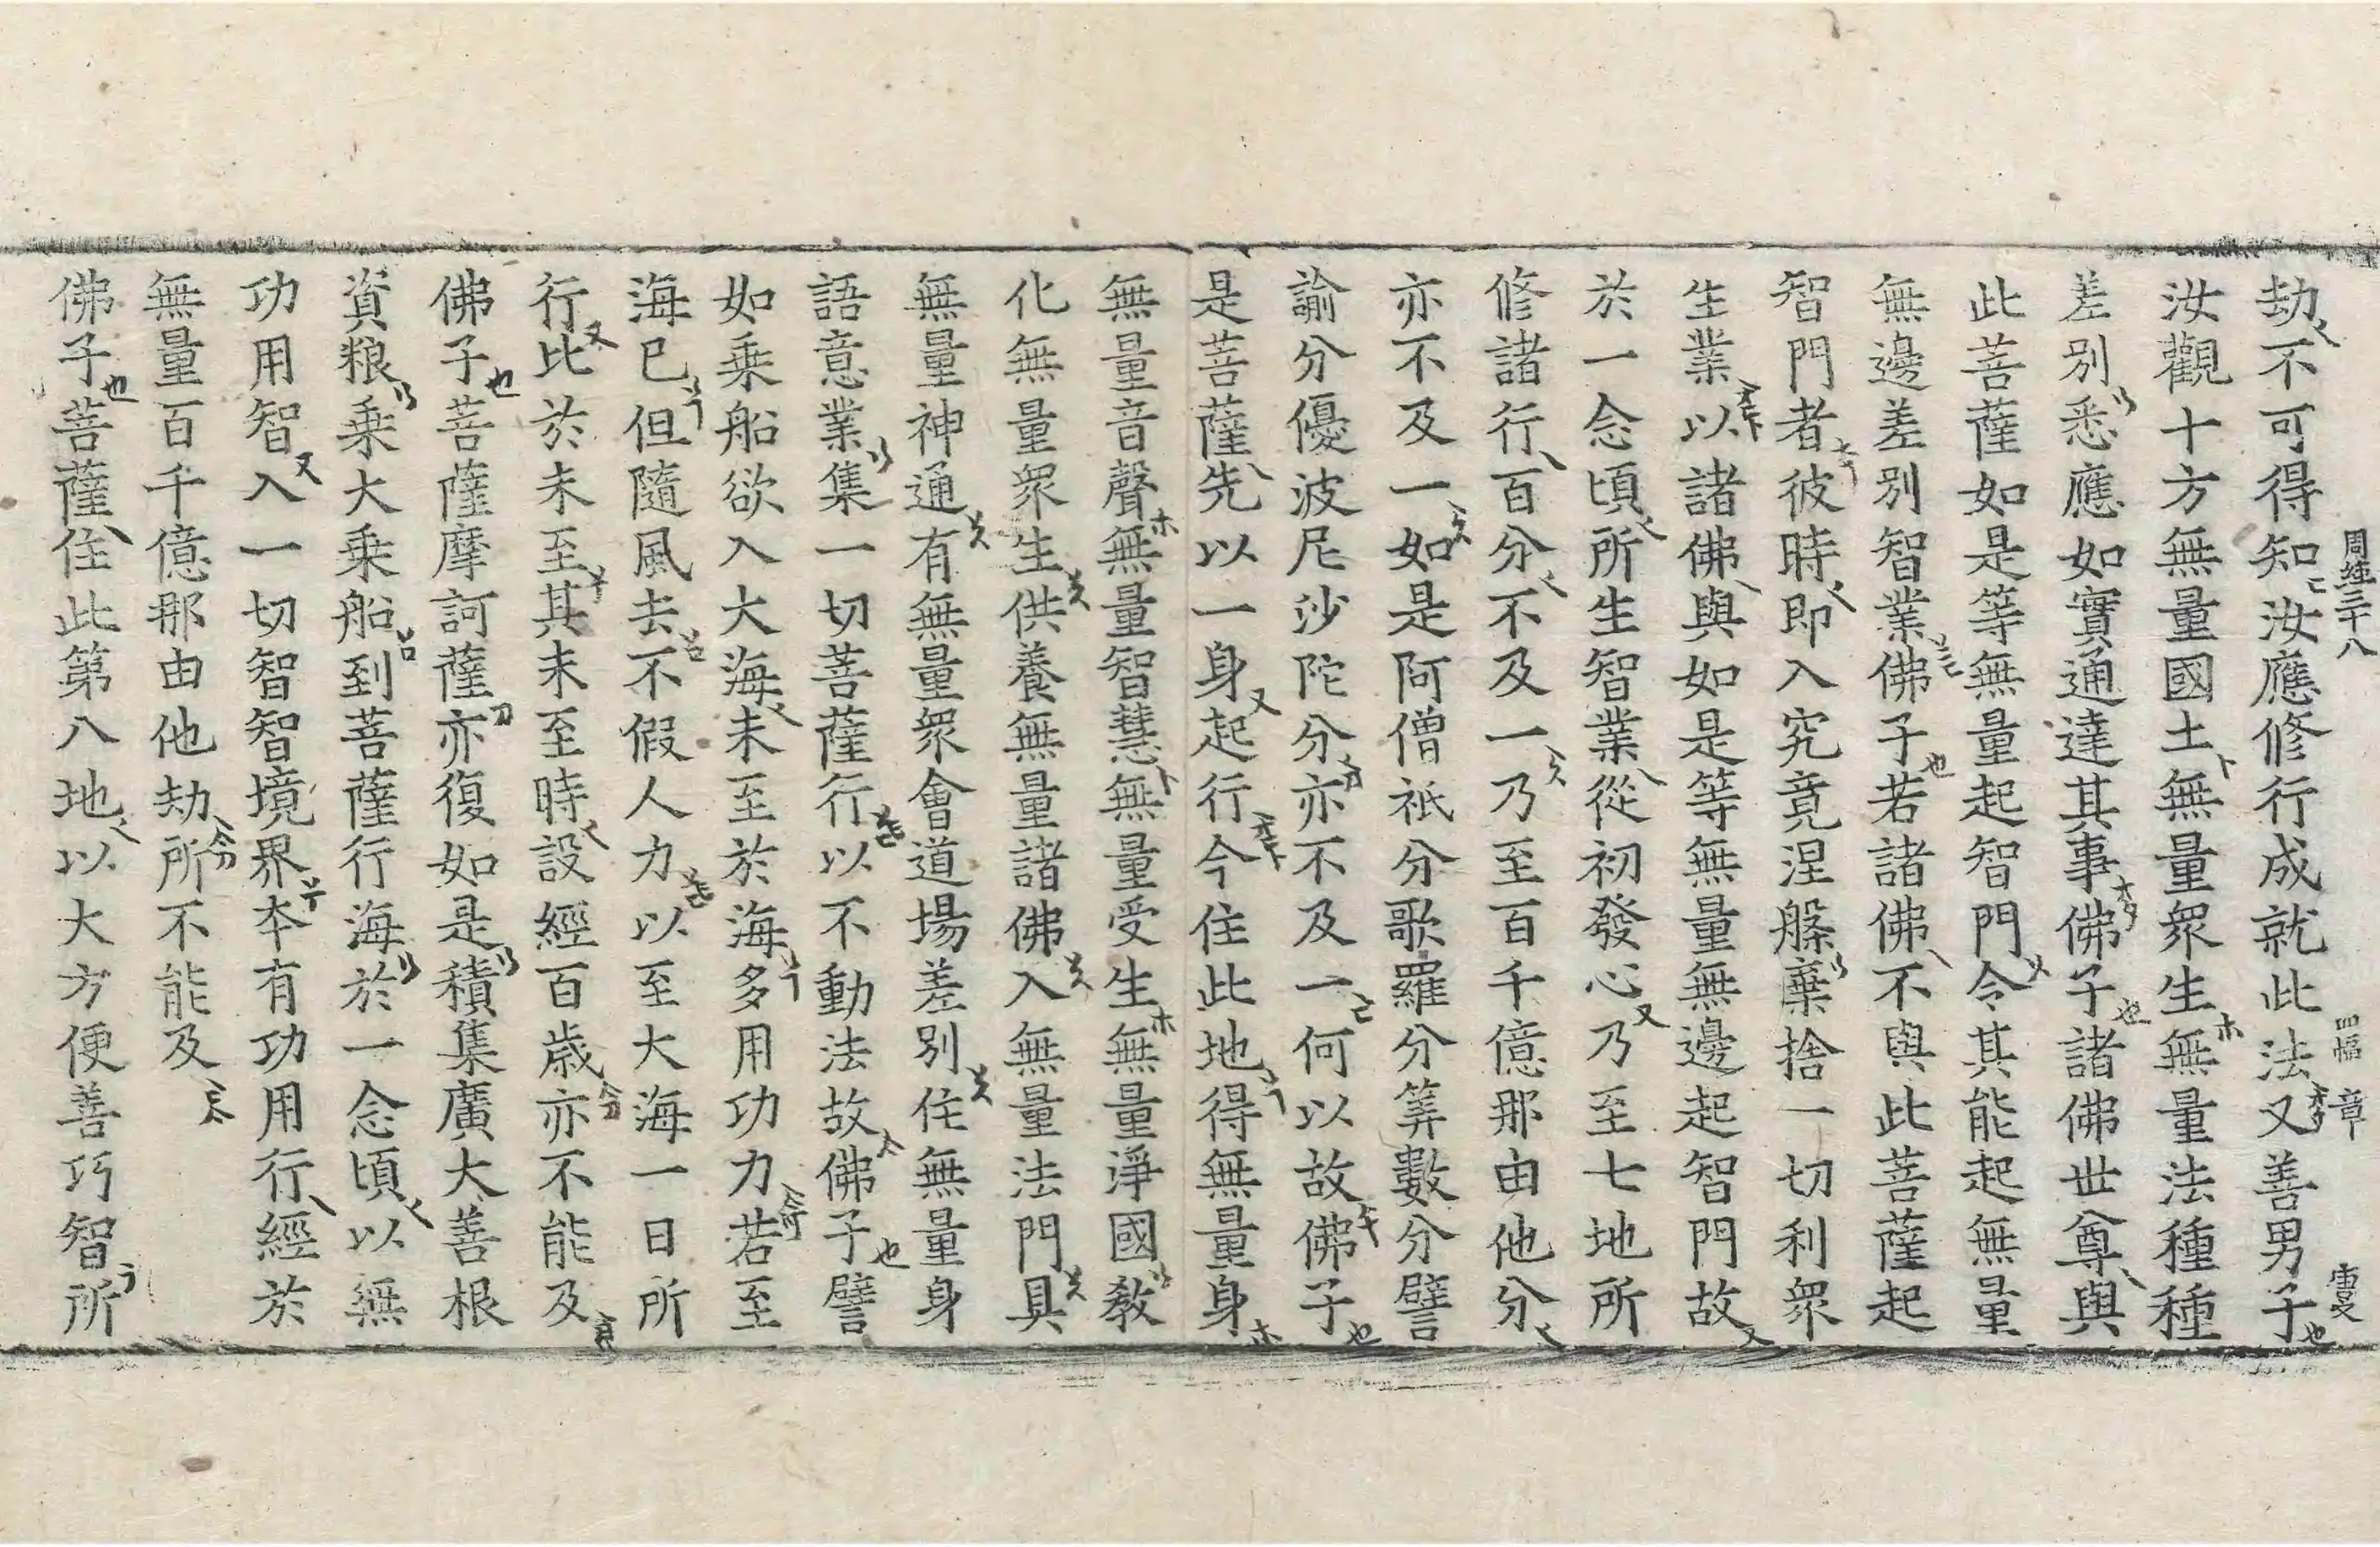 周經三十八 四幅 章
劫不可得知汝應修行成就此法又善男子
汝觀十方無量國土無量衆生無量法種種
差別悉應如實通達其事佛子諸佛世尊與
此菩薩如是等無量起智門令其能起無量
無邊差別智業佛子若諸佛不與此菩薩起
智門者彼時即入究竟涅槃棄捨一切利衆
生業以諸佛與如是等無量無邊起智門故
於一念頃所生智業從初發心乃至七地所
修諸行百分不及一乃至百千億那由他分
亦不及一如是阿僧祇分歌羅分筭數分譬
諭分優波尼沙陀分亦不及一何以故佛子
是菩薩先以一身起行今住此地得無量身
無量音聲無量智慧無量受生無量淨國教
化無量衆生供養無量諸佛入無量法門具
無量神通有無量衆會道場差別住無量身
語意業集一切菩薩行以不動法故佛子譬
如乘船欲入大海未至於海多用功力若至
海已但隨風去不假人力以至大海一日所
行比於未至其未至時設經百歲亦不能及
佛子菩薩摩訶薩亦復如是積集廣大善根
資粮乘大乘船到菩薩行海於一念頃以無
功用智入一切智智境界本有功用行經於
無量百千億那由他劫所不能及
佛子菩薩住此第八地以大方便善巧智所